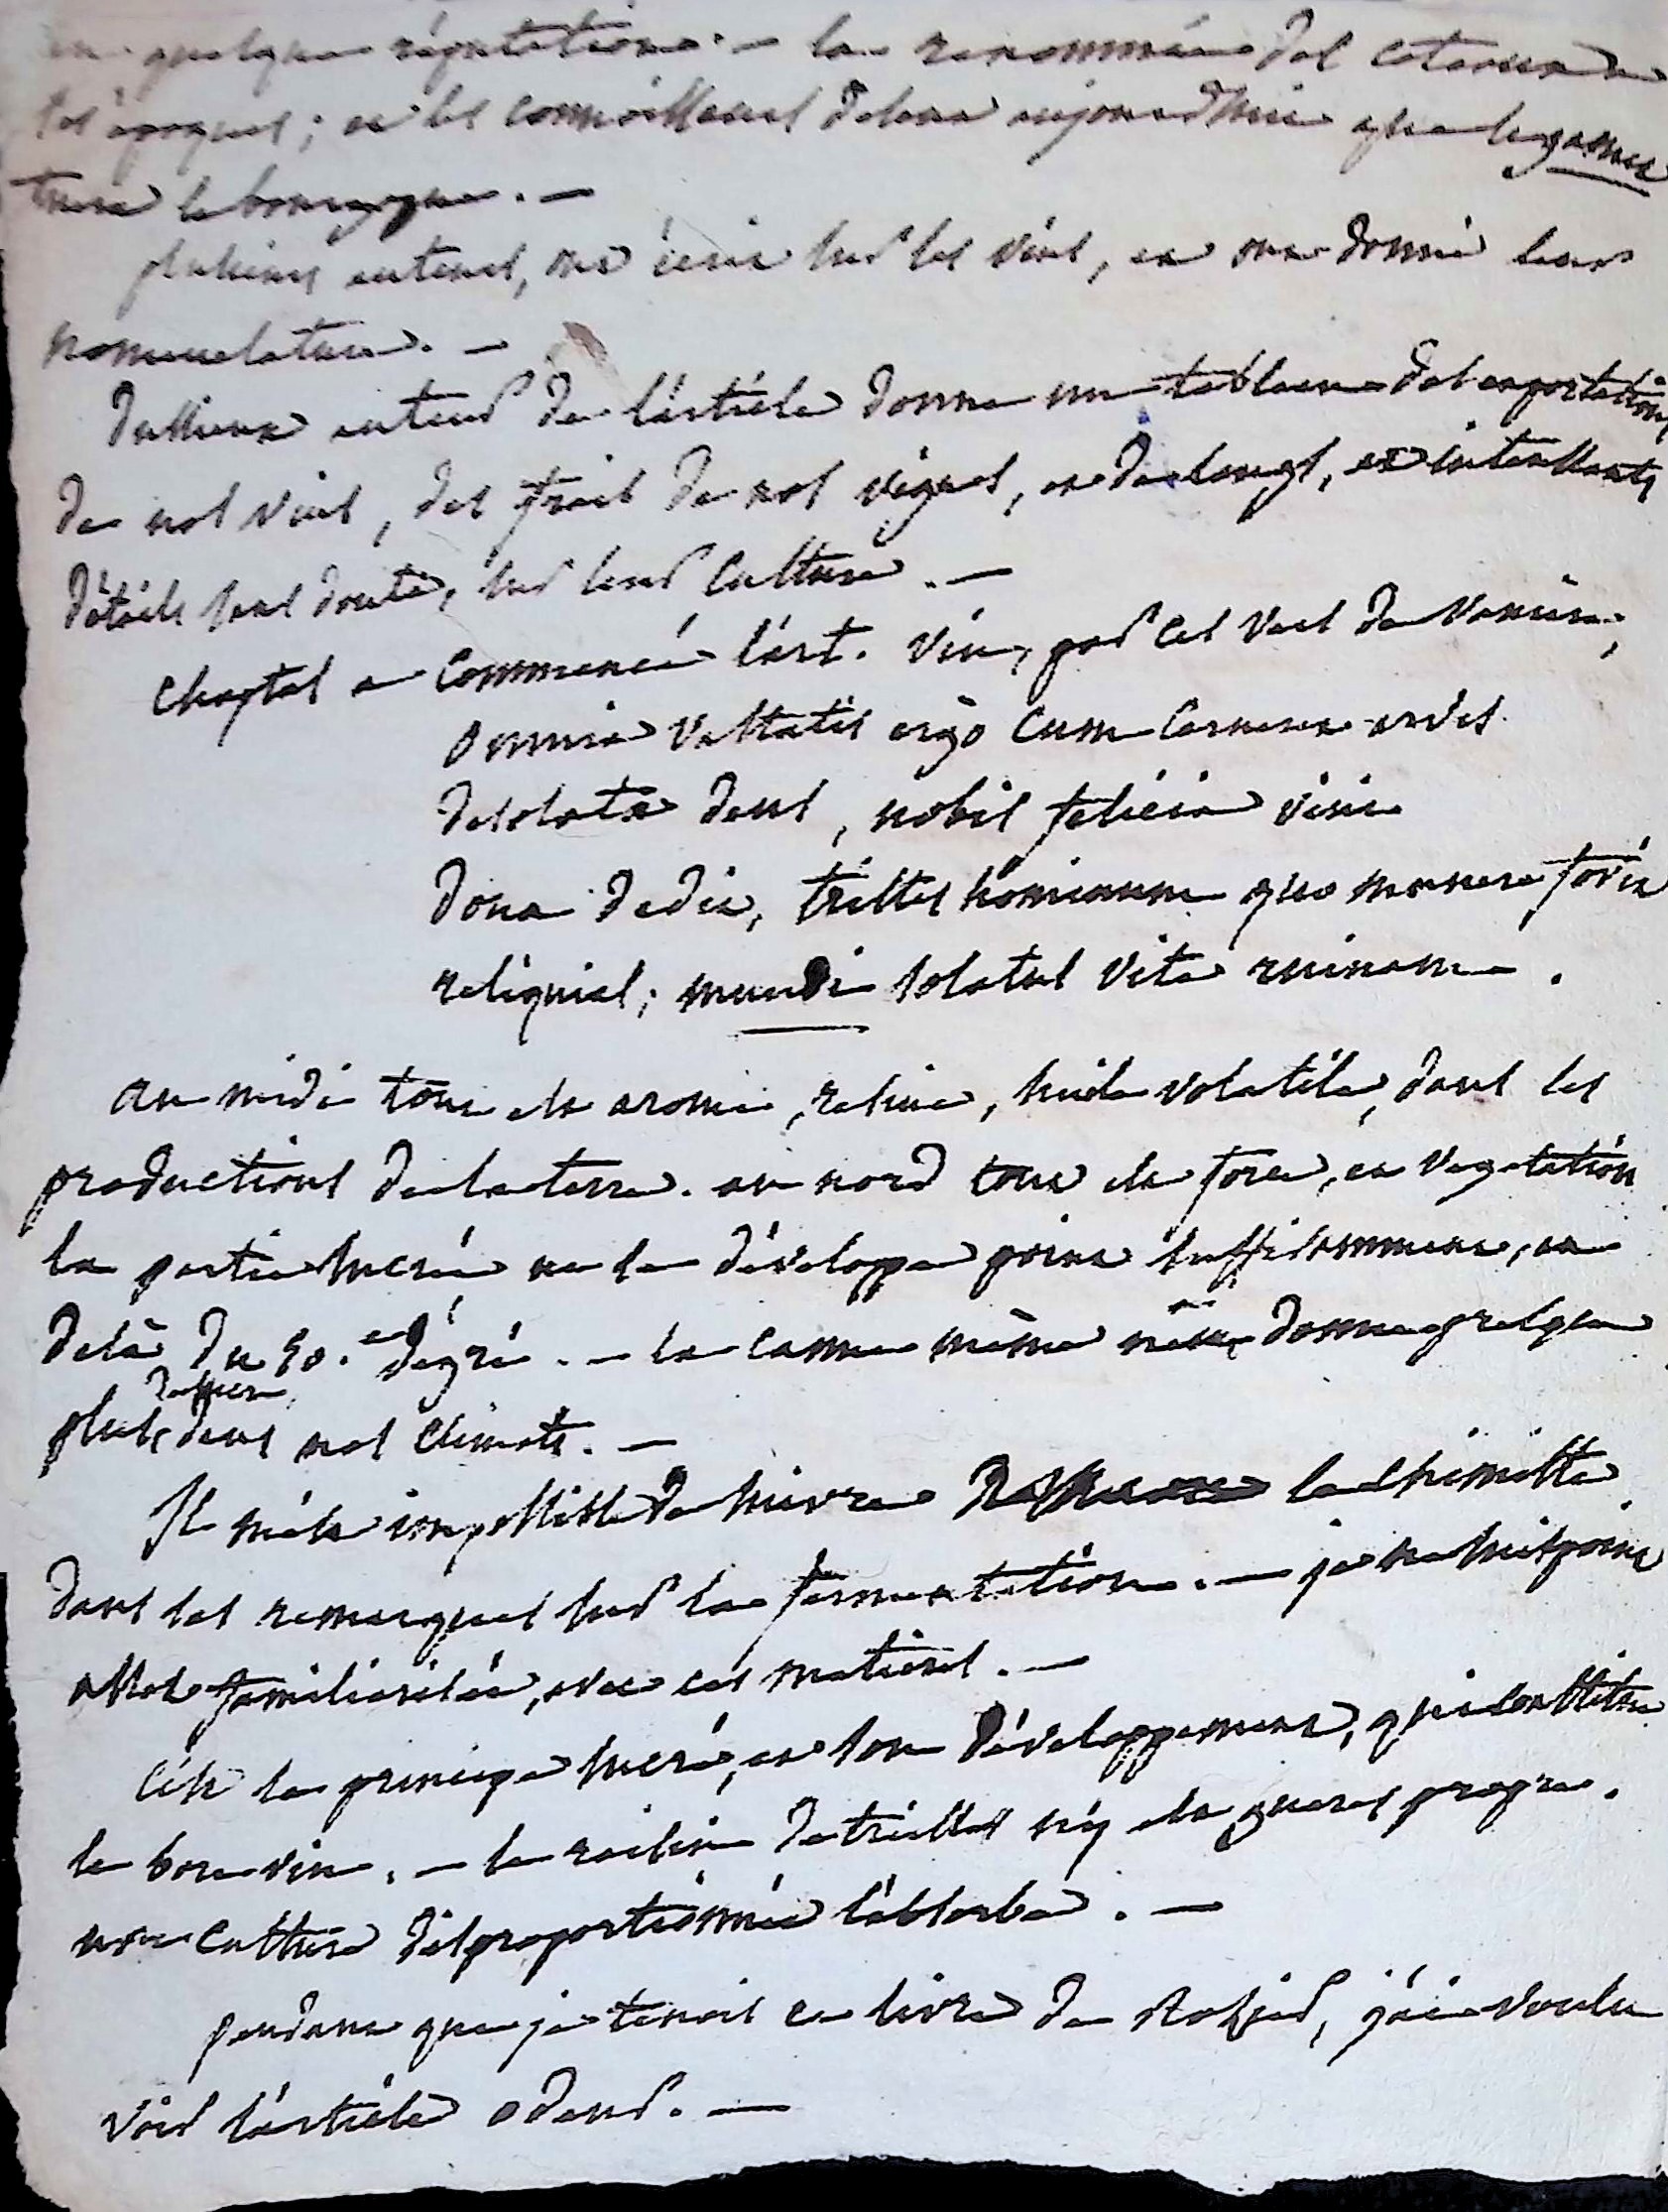 en quelque réputation. — la renommée des coteaux a
ses époques; et les connoisseurs de aujourdhui que le gamet
tuera la bourgogne. —
plusieurs auteurs, ont écrit sur les vins, et ont donné leur
nomenclature. —
Dussieux auteur de l'article donne un tableau des exportations
de nos vins, des frais de nos vignes, et de longs, et intéressants
détails sans doute, sur leur culture. —
Chaptal a commencé l'art. vin, par ces vers de Vanière,
omnia vastatis ergo cum cerneret arvis
desolata deus, nobis felicia vini
dona dedit, tristes hominum quo munere fovit
reliquias; mundi solatus vite ruinam.
au midi tout est arome, resine, huile volatile, dans les
productions de la terre. au nord tout est force, et vegetation
la partie sucrée ne se développe point suffisamment, au
delà du 50.e dégré. — la canne même ne donne presque
plus de sucre dans nos climats. —
Il m'est impossible de suivre le chimiste
dans ses remarques sur la fermentation. — je ne suis point
assez familiarisée, avec ces matieres. —
C'est le principe sucré, et son développement, qui constitue
le bon vin. — le raisin de treilles n'y est gueres propre.
une culture disproportionnée l'absorbe. —
pendant que je tenois ce livre de Rosier, j'ai voulu
voir l'article odeur. —